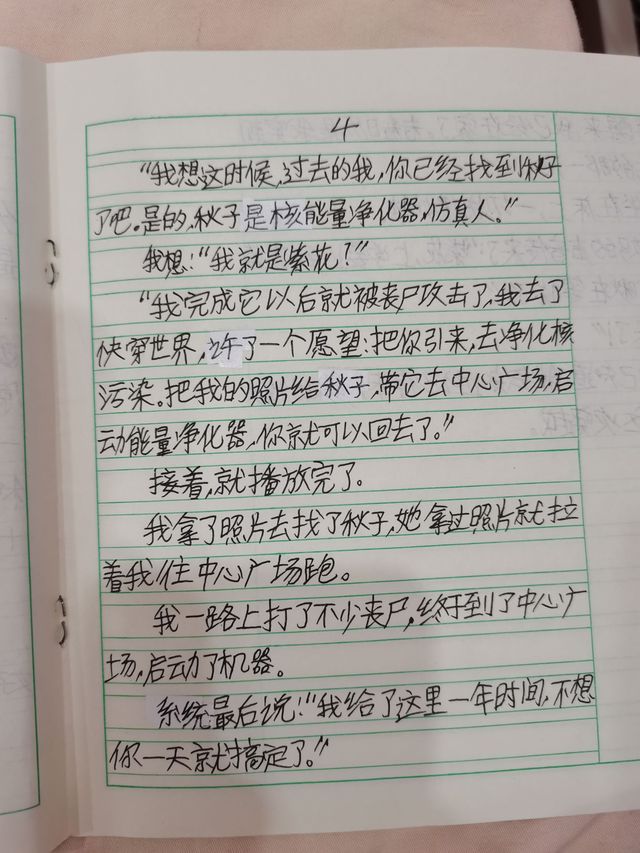 4
“我想这时候,过去的我,你已经找到秋子
了吧。是的,秋子是核能量净化器,仿真人。”
我想:“我就是紫花?”
“我完成它以后就被丧尸攻去了,我去了
快穿世界,许了一个愿望:把你引来,去净化核
污染。把我的照片给秋子,带它去中心广场,启
动能量净化器,你就可以回去了。”
接着,就播放完了。
我拿了照片去找了秋子,她拿过照片就拉
着我往中心广场跑。
我一路上打了不少丧尸,终于到了中心广
场,启动了机器。
系统最后说:“我给了这里一年时间,不想
你一天就搞定了。”